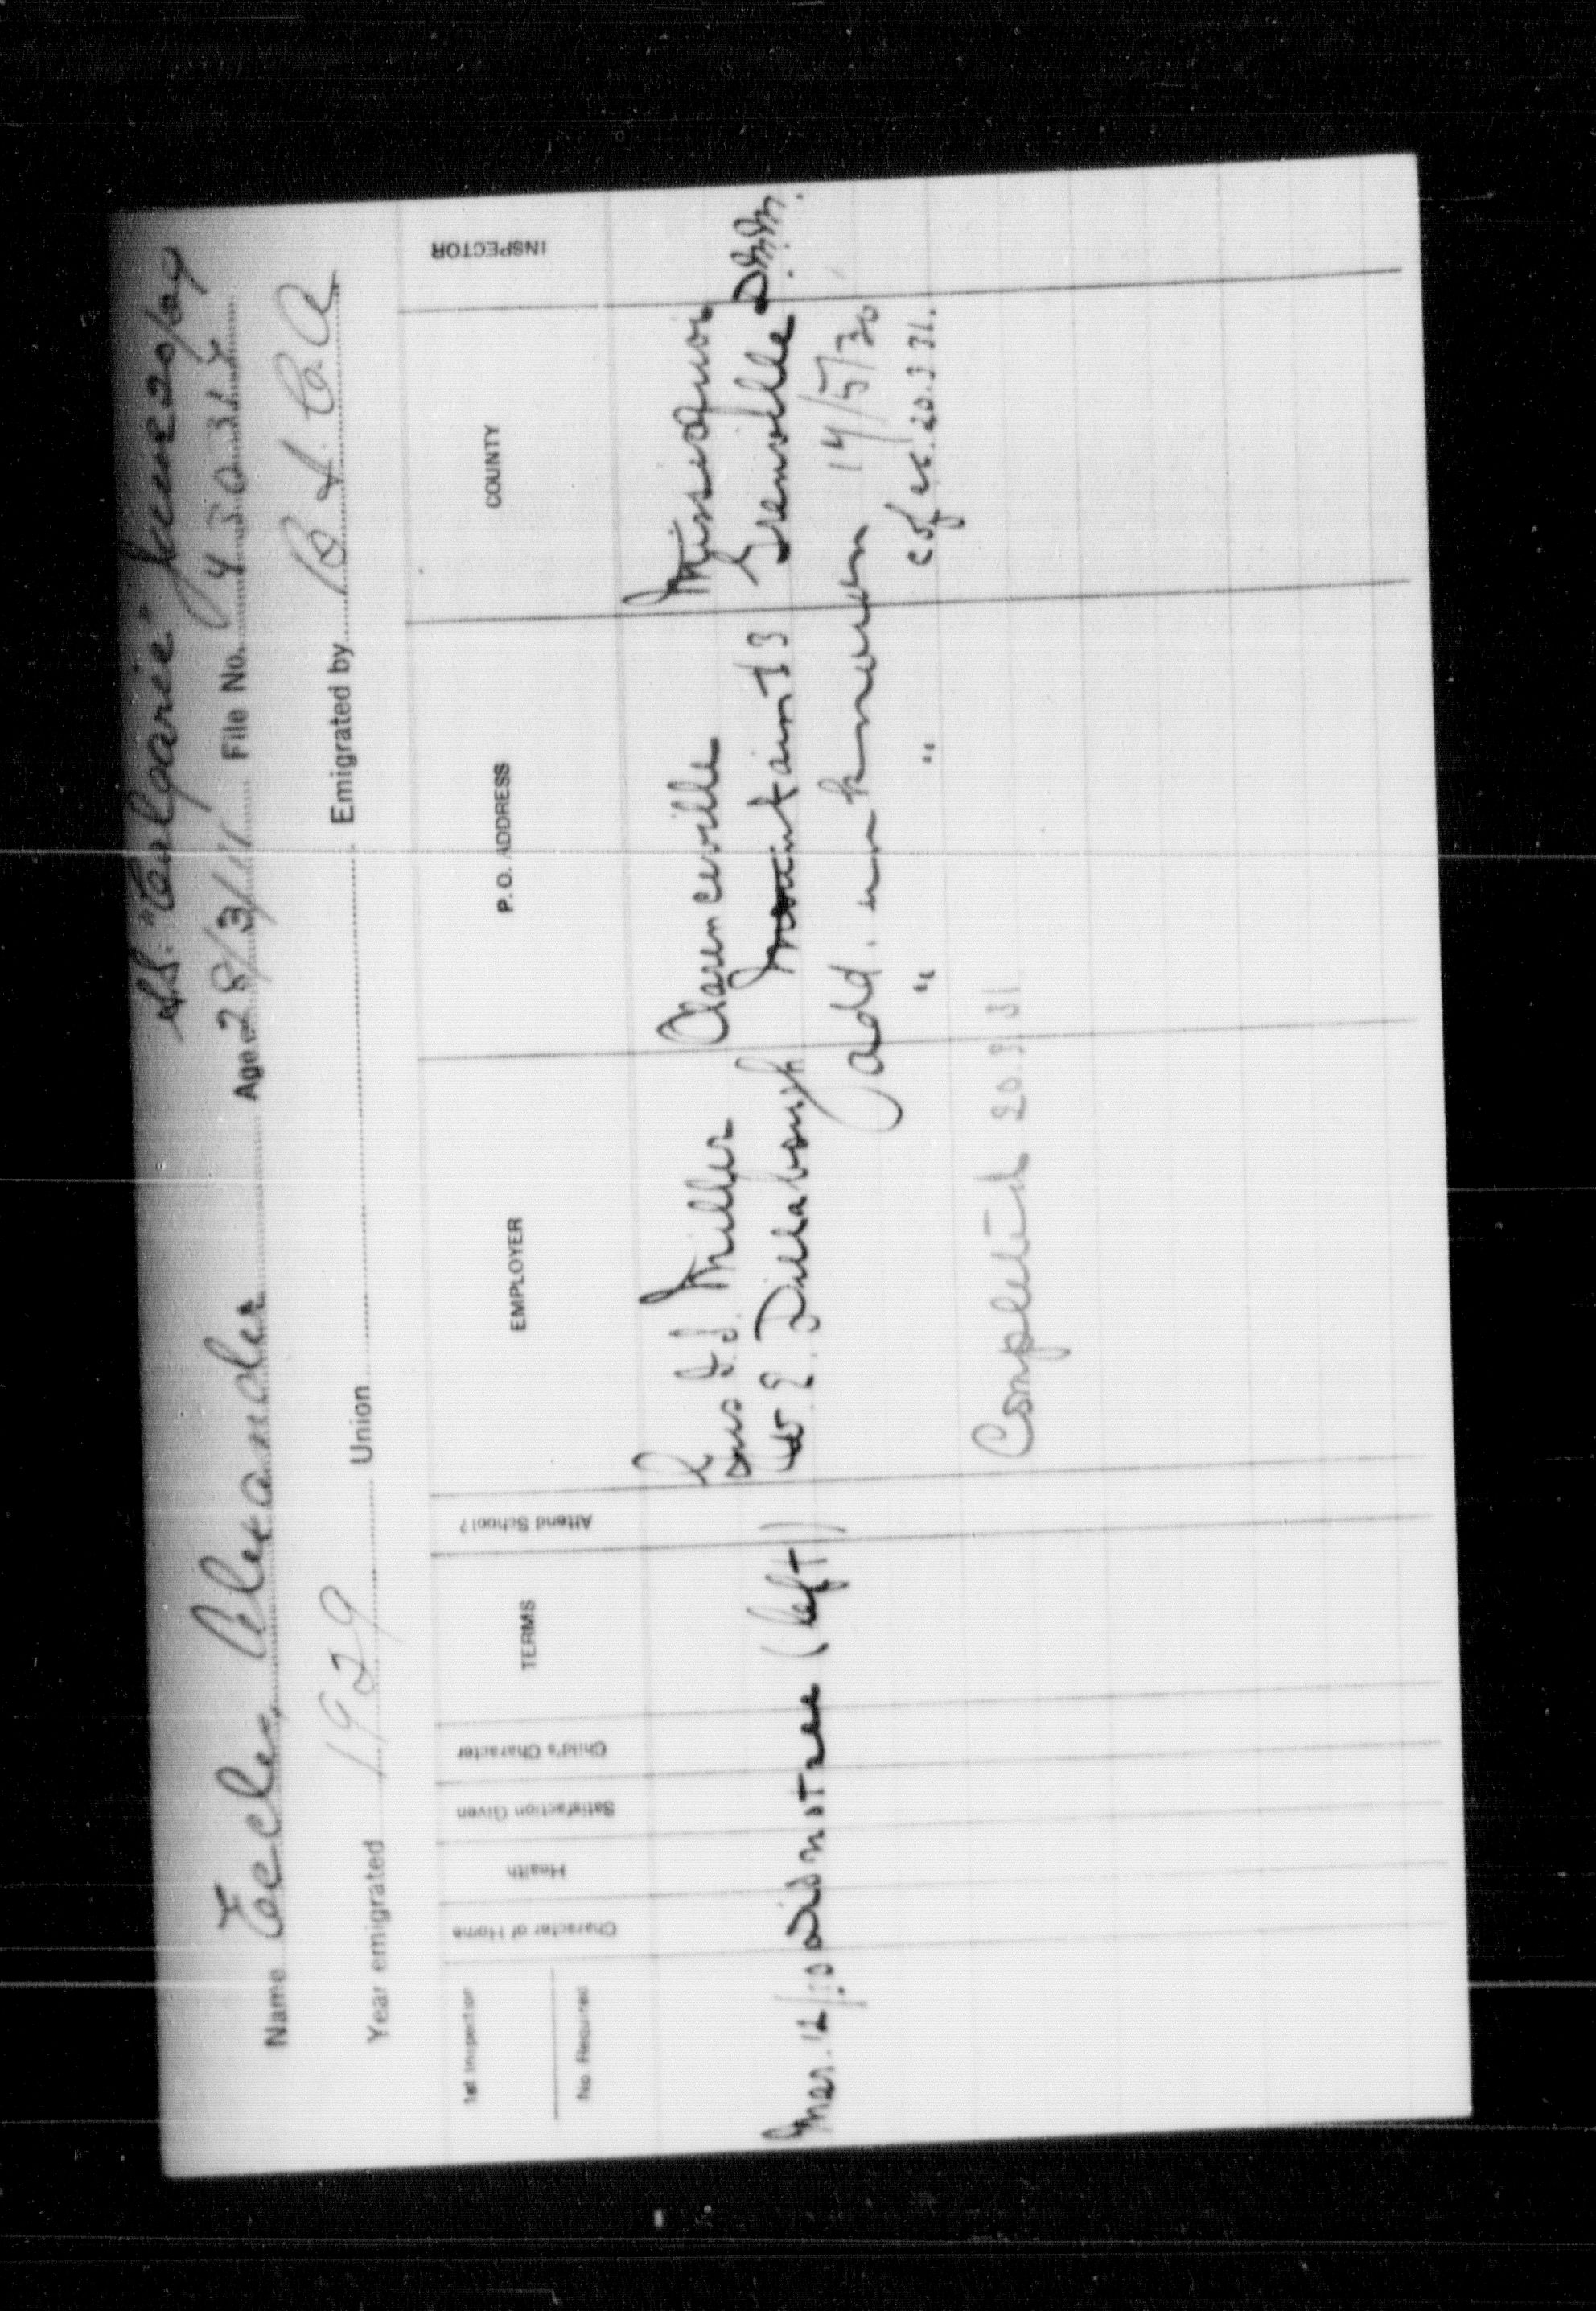 S.S. "Calgaric" June 20/29
Name Eccles, Alexander Age 28/3/11 File No.
Year emigrated 1929 Union Emigrated by B I C A
1st Inspection
No. Required
Character of Home Health Satisfaction Given Child's Character TERMS Attend School? EMPLOYER P. O. ADDRESS COUNTY INSPECTOR
Miller Clarenceville Missisquoi
Mar. 12/30 did not see (left) W. E. Dillabough Mountain R 3 Grenville D.M.M.
add. unknown 14/5/30
" " 20.3.31.
Completed 20.3.31